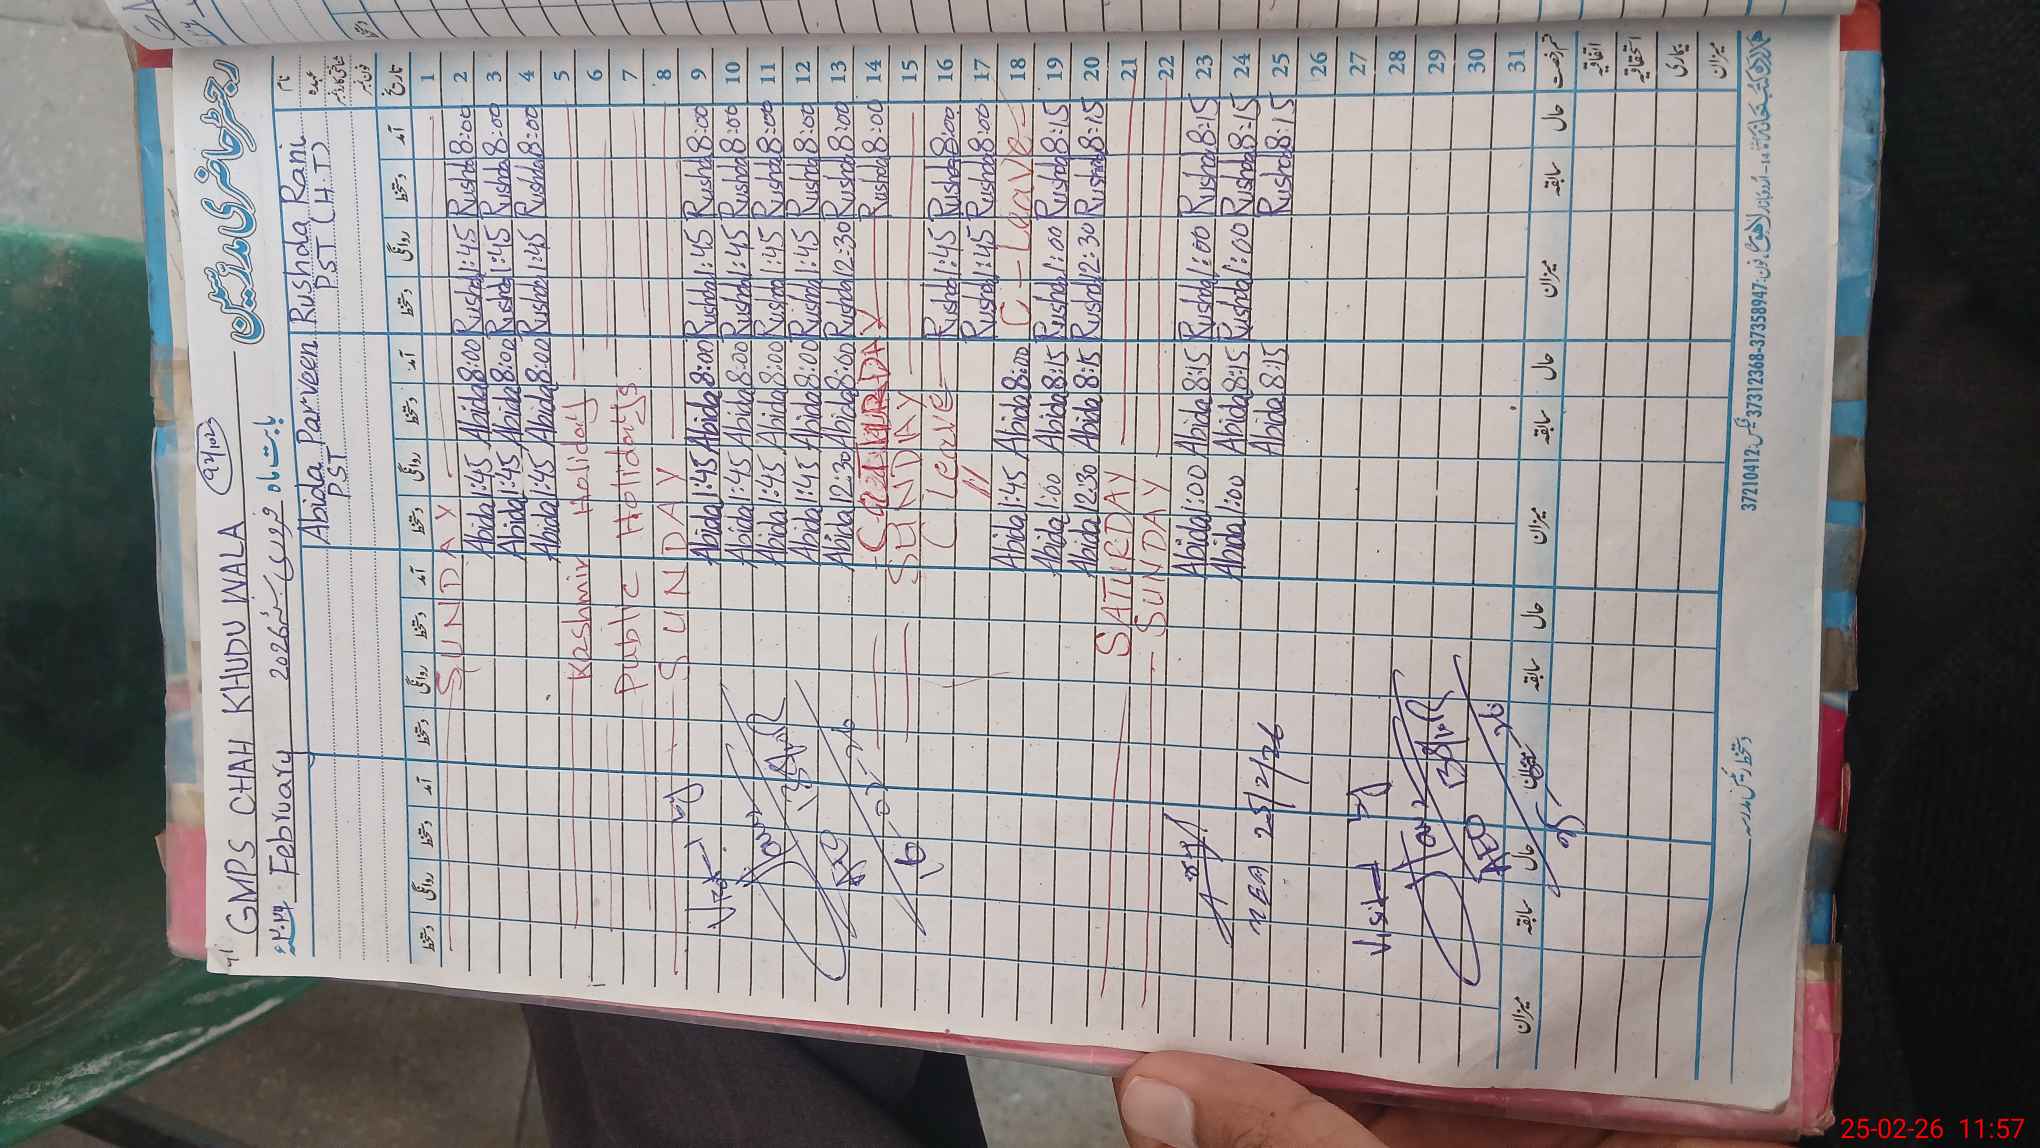 رجسٹر حاضری مدرسین
GMPS CHAH KHUDU WALA
February 2026 بابت ماہ فروری
نام Rushda Rani Abida Parveen
عہدہ PST (H.T) PST
تاریخ آمد دستخط روانگی دستخط آمد دستخط روانگی دستخط آمد دستخط روانگی دستخط آمد دستخط روانگی دستخط
1 SUNDAY
2 8:00 Rushda 1:45 Rushda 8:00 Abida 1:45 Abida
3 8:00 Rushda 1:45 Rushda 8:00 Abida 1:45 Abida
4 8:00 Rushda 1:45 Rushda 8:00 Abida 1:45 Abida
5 Kashmir Holiday
6
7 Public Holidays
8 SUNDAY
9 8:00 Rushda 1:45 Rushda 8:00 Abida 1:45 Abida
10 8:00 Rushda 1:45 Rushda 8:00 Abida 1:45 Abida
11 8:00 Rushda 1:45 Rushda 8:00 Abida 1:45 Abida
12 8:00 Rushda 1:45 Rushda 8:00 Abida 1:45 Abida
13 8:00 Rushda 12:30 Rushda 8:00 Abida 12:30 Abida
14 8:00 Rushda
15 SUNDAY
16 8:00 Rushda 1:45 Rushda C Leave
17 8:00 Rushda 1:45 Rushda //
18 C - Leave 8:00 Abida 1:45 Abida
19 8:15 Rushda 1:00 Rushda 8:15 Abida 1:00 Abida
20 8:15 Rushda 12:30 Rushda 8:15 Abida 12:30 Abida
21 SATURDAY
22 SUNDAY
23 8:15 Rushda 1:00 Rushda 8:15 Abida 1:00 Abida
24 8:15 Rushda 1:00 Rushda 8:15 Abida 1:00 Abida
25 8:15 Rushda 8:15 Abida
26
27
28
29
30
31
Visited by
AEO
16-02-26
MEA 25/2/26
Visited by
AEO
قسم رخصت حال سابقہ میزان حال سابقہ میزان حال سابقہ میزان حال سابقہ میزان
اتفاقیہ
استحقاقیہ
بیماری
میزان
دستخط رئیس مدرسہ
37312368-37358947 37210412
25-02-26 11:57